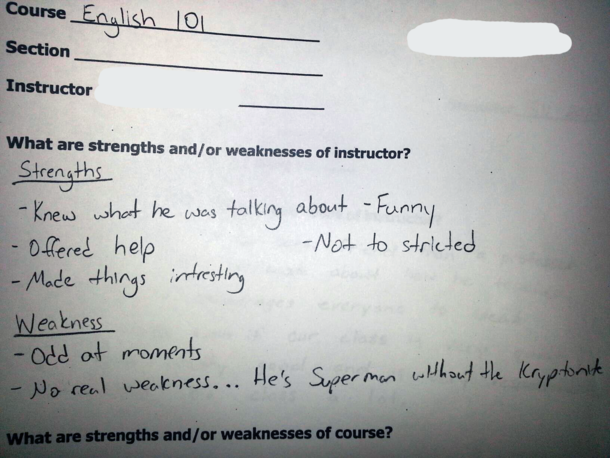 Course English 101
Section
Instructor
What are strengths and/or weaknesses of instructor?
Strengths
- Knew what he was talking about - Funny
- Offered help - Not to stricted
- Made things intresting
Weakness
- Odd at moments
- No real weakness... He's Superman without the Kryptonite
What are strengths and/or weaknesses of course?